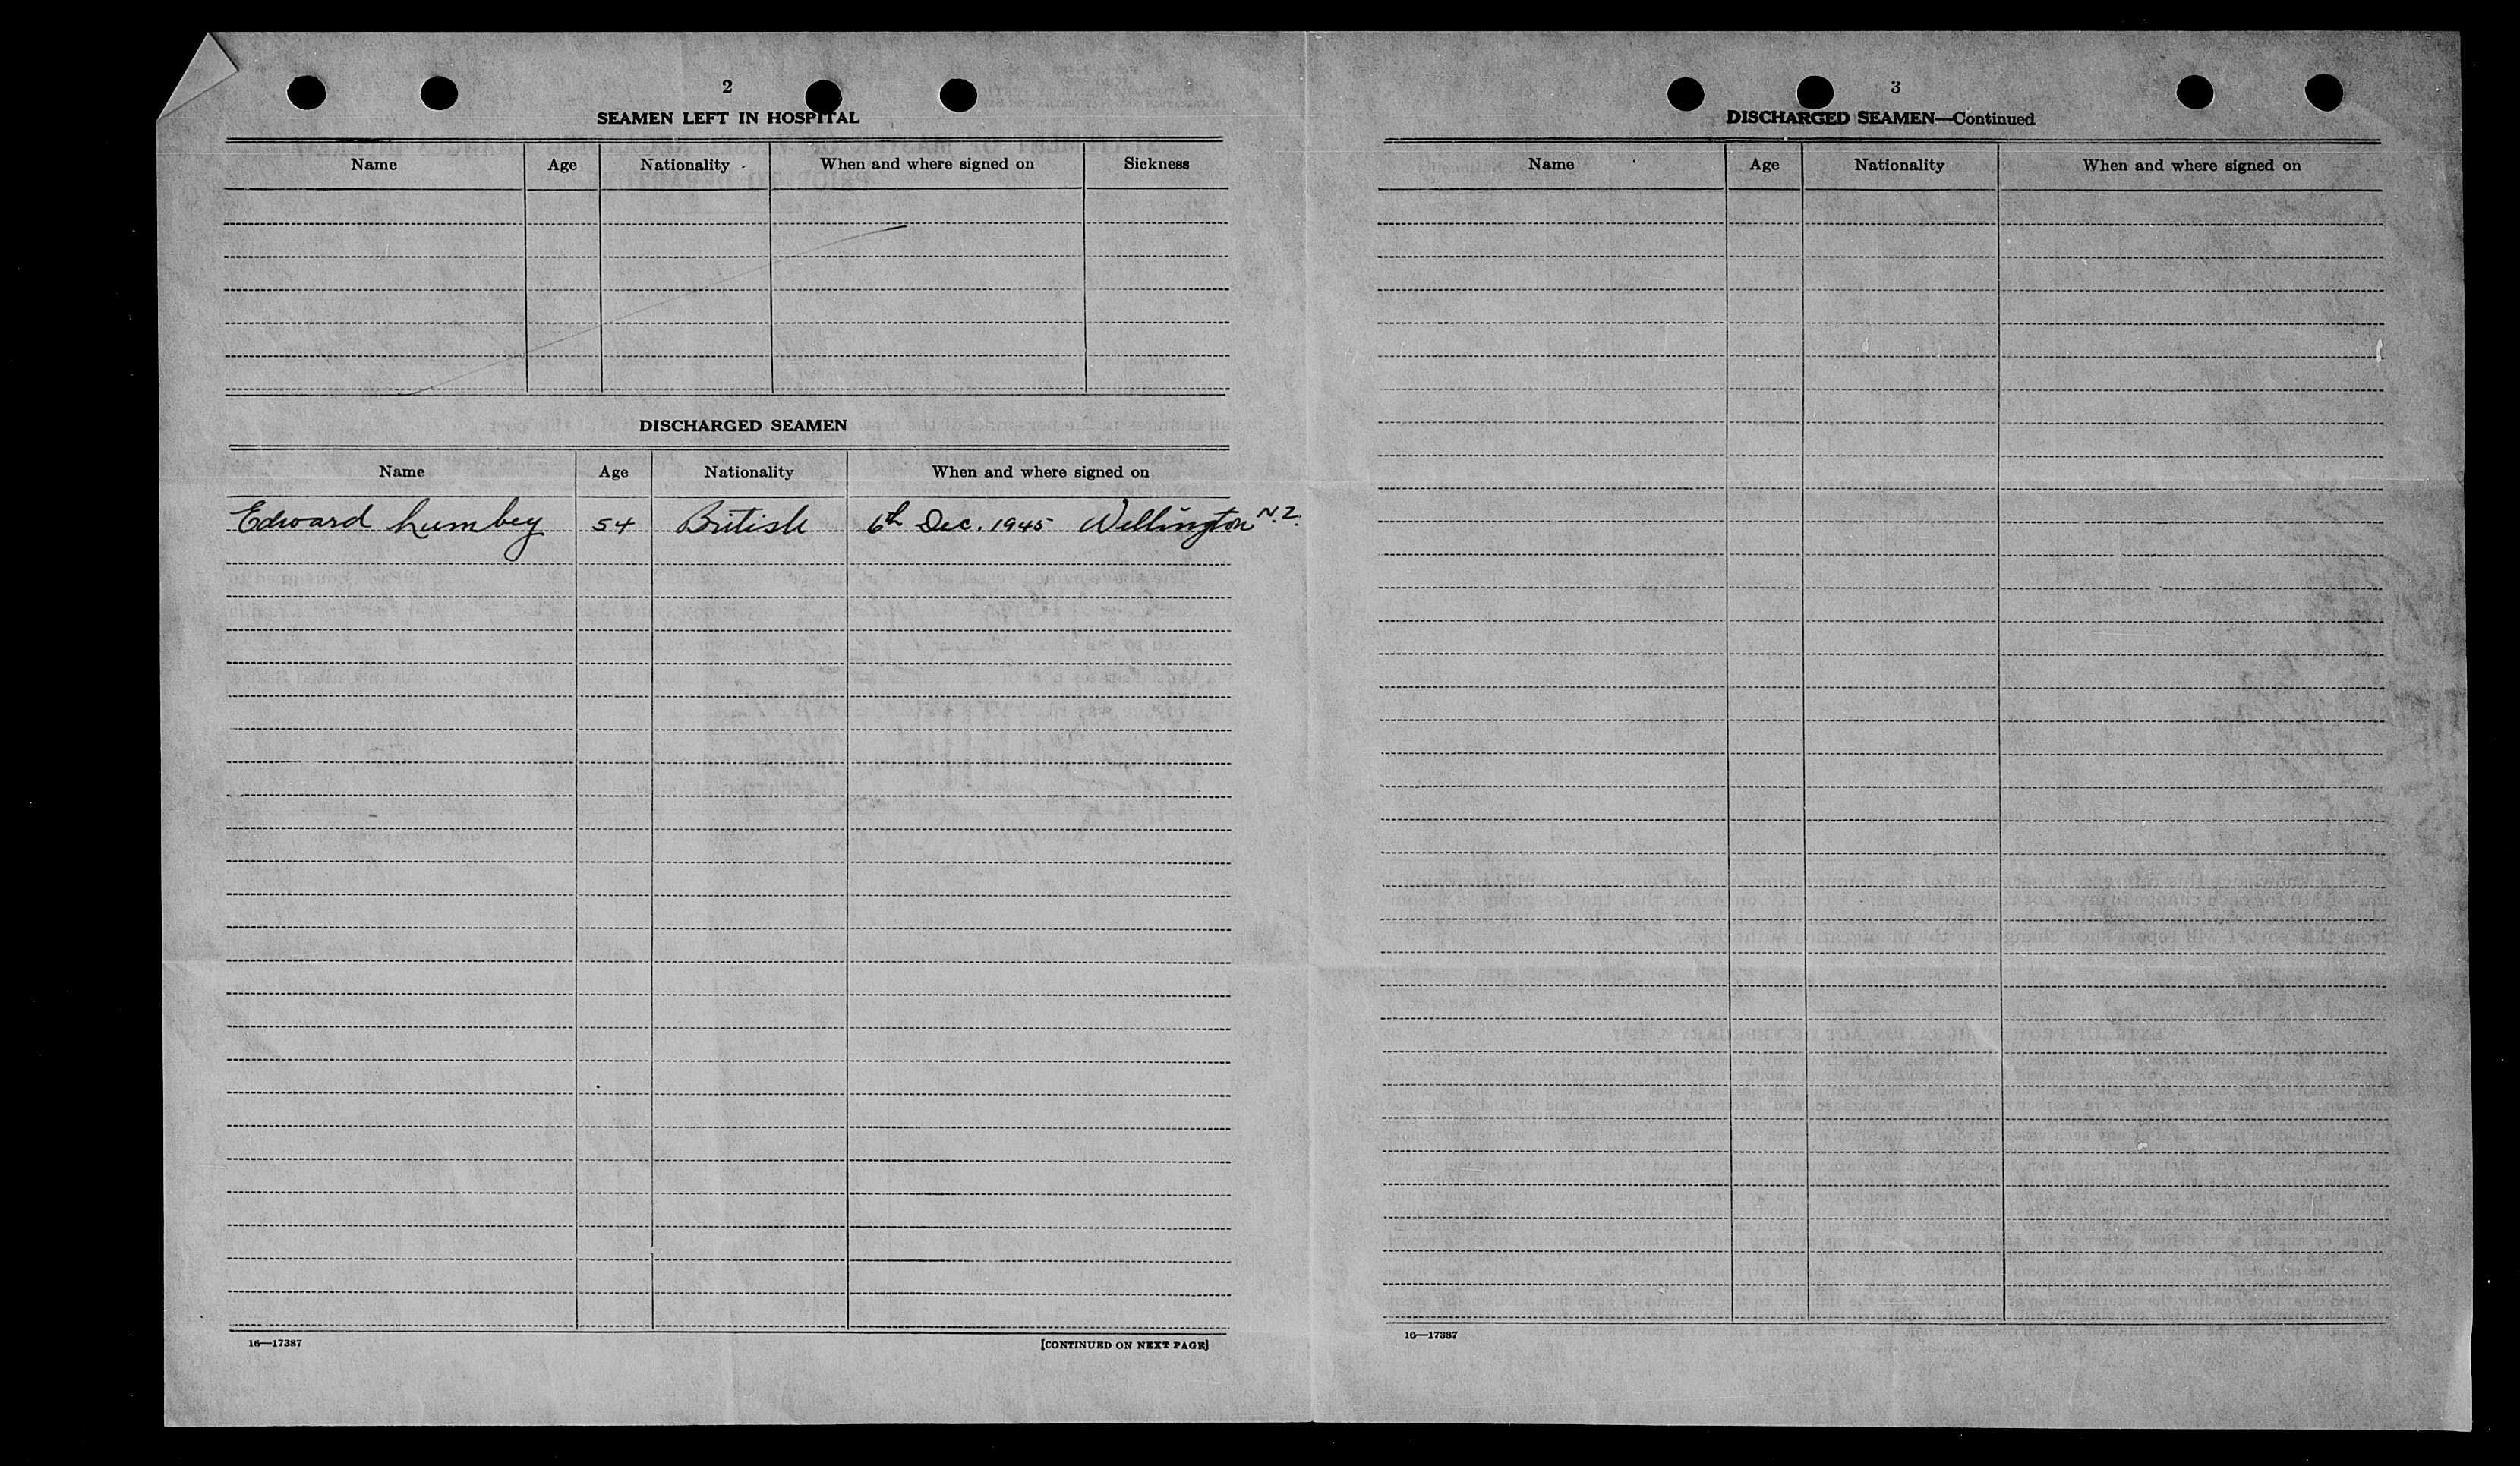 2
SEAMEN LEFT IN HOSPITAL
Name Age Nationality When and where signed on Sickness
DISCHARGED SEAMEN
Name Age Nationality When and where signed on
Edward Lumbey 54 British 6th Dec. 1945 Wellington N.Z.
16—17387 [CONTINUED ON NEXT PAGE]
3
DISCHARGED SEAMEN—Continued
Name Age Nationality When and where signed on
16—17387